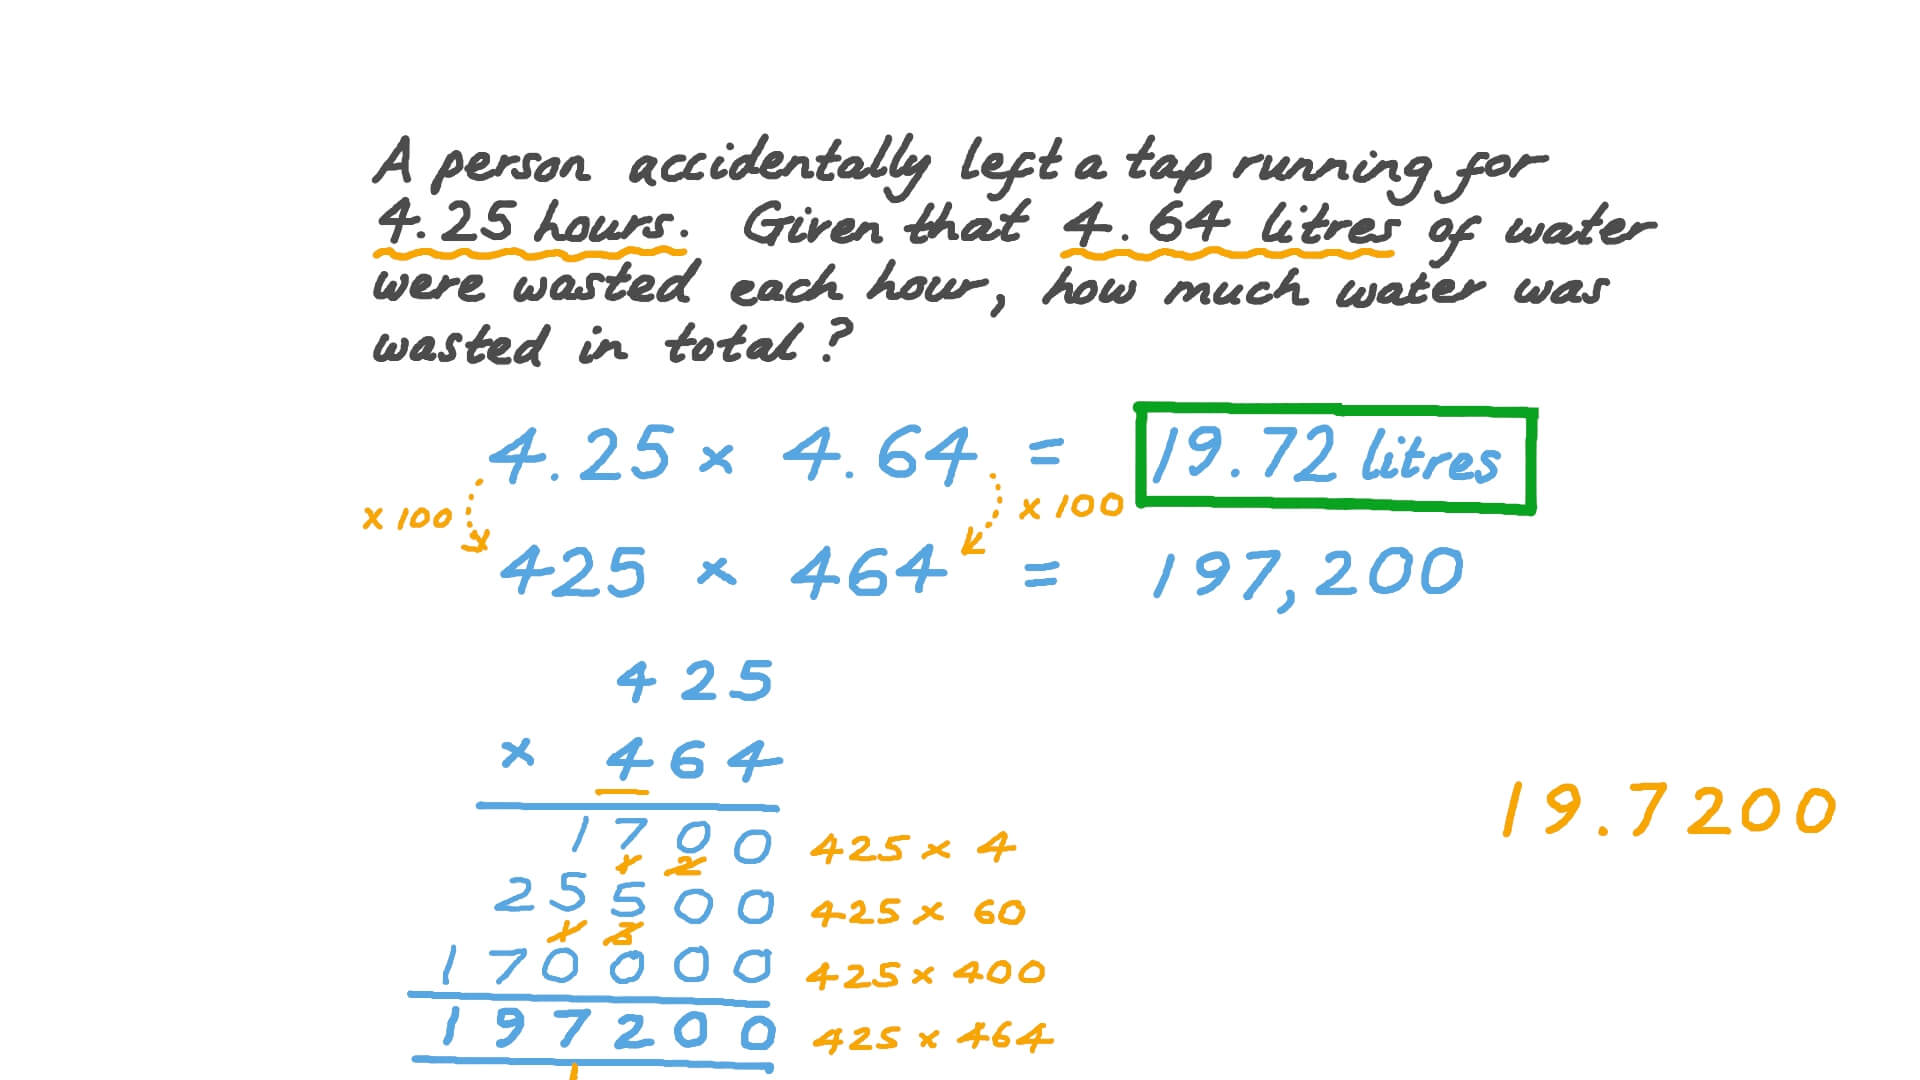 A person accidentally left a tap running for
4.25 hours. Given that 4.64 litres of water
were wasted each hour, how much water was
wasted in total?
4.25 × 4.64 = 19.72 litres
× 100 × 100
425 × 464 = 197,200
425
× 464
1700 425 × 4
1 2
25500 425 × 60
1 3
170000 425 × 400
197200 425 × 464
1
19.7200